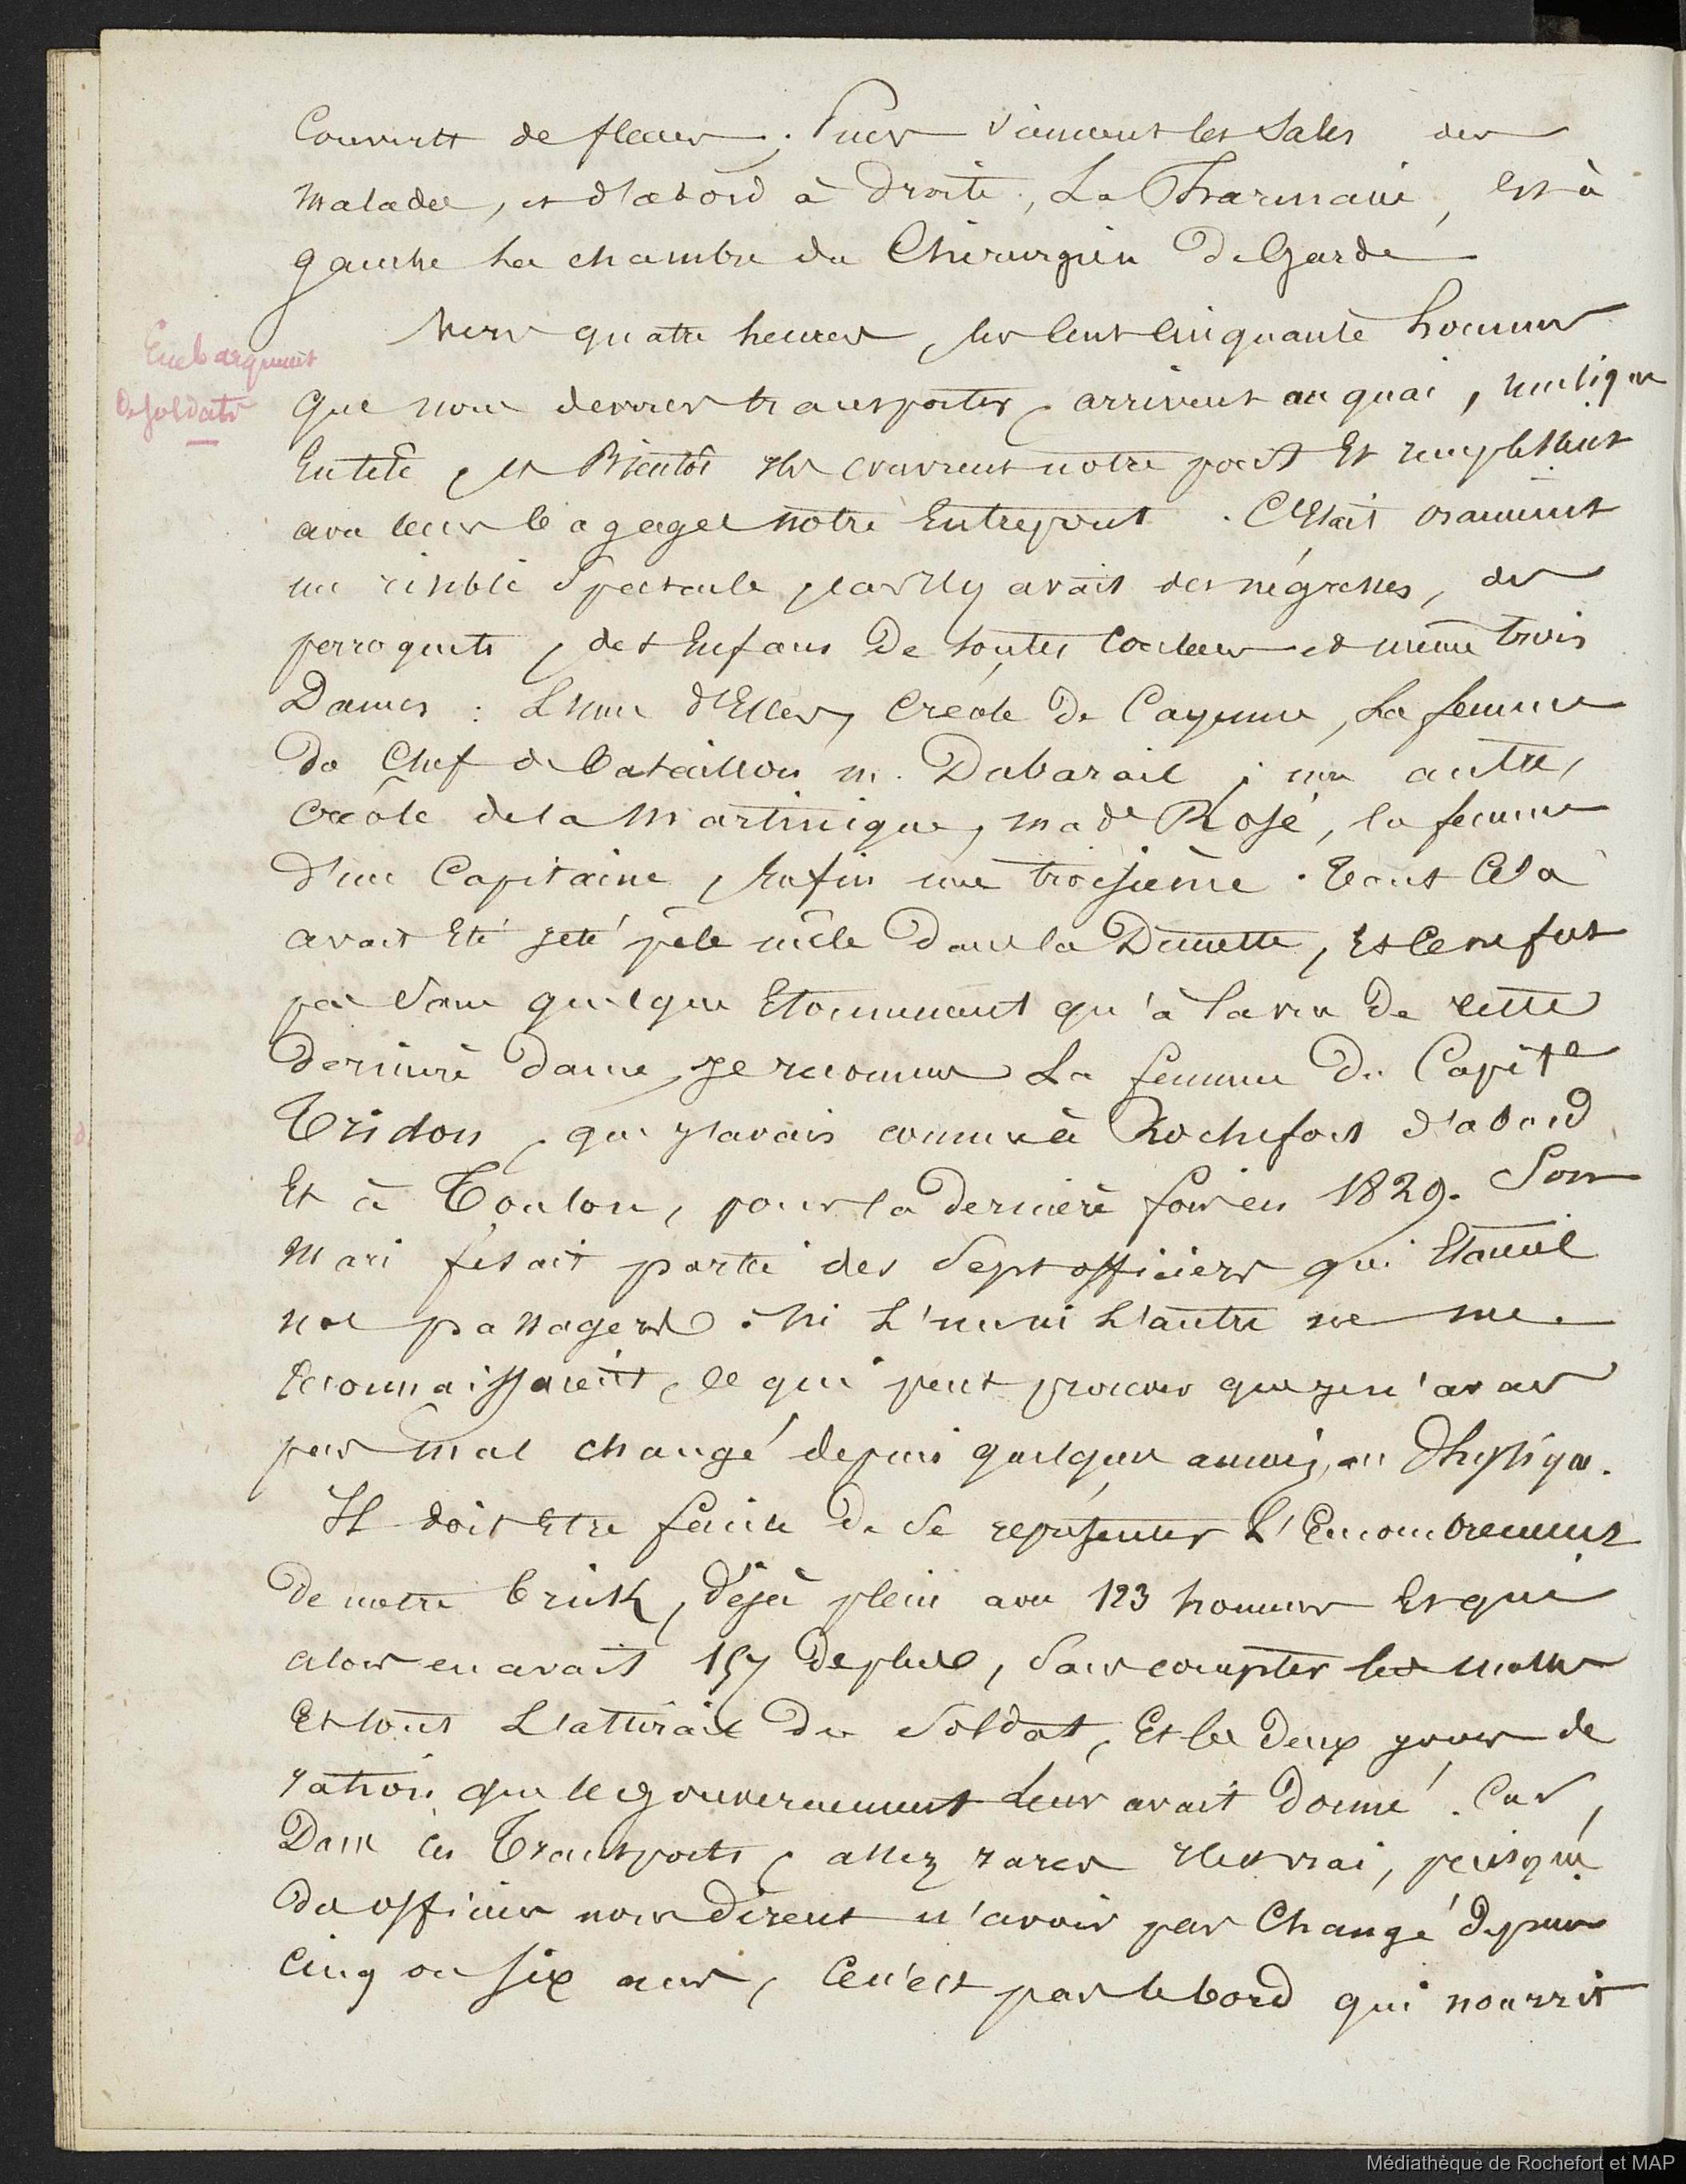 Couverts de fleurs ; Puis viennent les Sales des
malades, et d'abord à droite, La Pharmacie, et à
gauche La chambre du Chirurgien De Garde
Embarquement
de soldats
Vers quatre heures, les cent cinquante hommes
que nous devions transporter, arrivent au quai, musique
En tête, et Bientôt Ils couvrent notre pont Et remplissent
avec leurs bagages notre Entrepont. C'Etait vraiment
un risible Spectacle, car Il y avait des négresses, des
perroquets, des Enfans De toutes Couleurs et même trois
Dames : L'une d'Elles, Créole De Cayenne, La femme
Du Chef de Bataillon m. Dubarail ; une autre,
Créole de la Martinique, made Rosé, la femme
d'un Capitaine, Enfin une troisième. Tout Cela
avait Eté jeté pêle mêle Dans la Dunette, Et Ce ne fut
pas Sans quelque Etonnement qu'à la vue De cette
Dernière dame, Je reconnus La femme Du Capite
Tridon, que J'avais connue à Rochefort d'abord
Et à Toulon, pour la Dernière fois en 1829. Son
Mari fesait partie des Sept officiers qui Etaient
nos passagers. Ni L'un ni L'autre ne me
reconnaissaient, ce qui peut prouver que je n'avais
pas mal changé depuis quelques années, au Physique.
Il doit Etre facile De Se représenter L'Encombrement
De notre brick, Déjà plein avec 123 hommes Et qui
alors en avait 157 De plus, Sans compter les malles
Et tout L'attirail Du Soldat, Et les Deux jours de
ration que le gouvernement Leur avait Donné. Car,
Dans ces Transports, assez rares Il est vrai, puisque
Des officiers nous Dirent n'avoir pas Changé Depuis
Cinq ou Six ans, Ce n'est pas le bord qui nourrit
Médiathèque de Rochefort et MAP